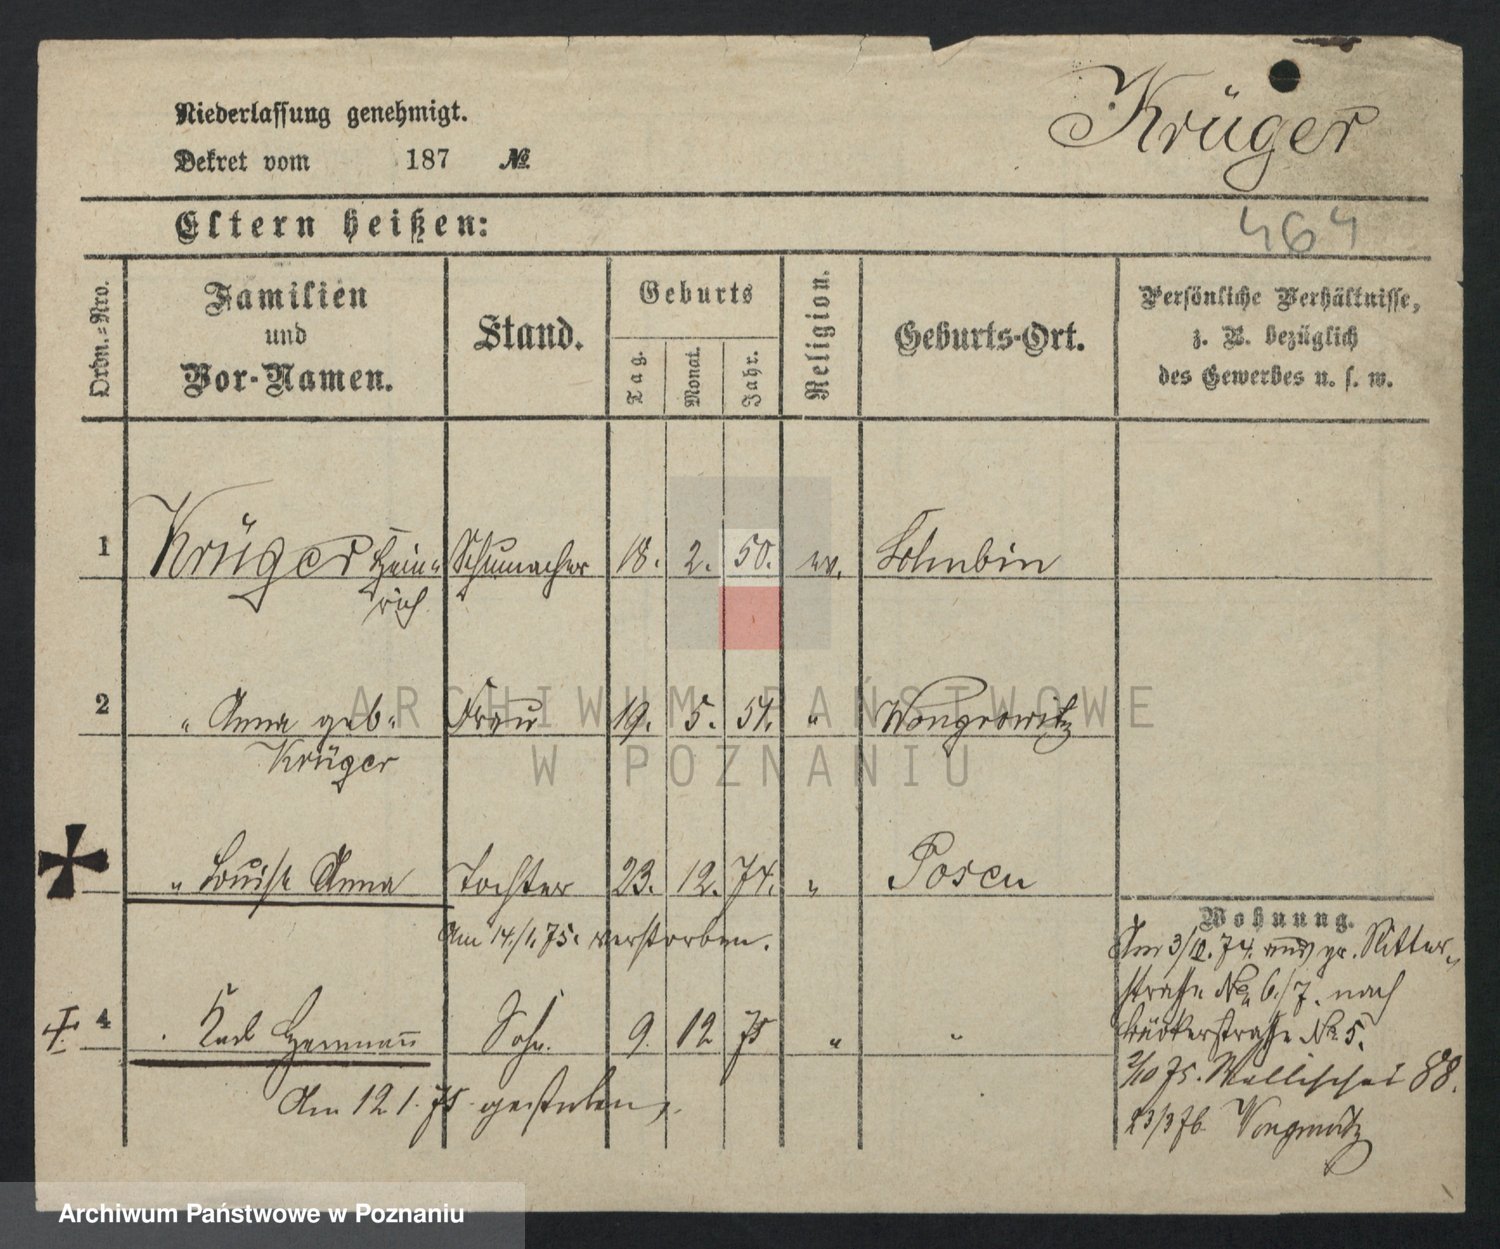 Niederlassung genehmigt.
Dekret vom 187 №
Krüger
Eltern heißen:
464
Ordn.=Nro.
Familien
und
Vor-Namen.
Stand.
Geburts
Tag.
Monat.
Jahr.
Religion.
Geburts-Ort.
Persönliche Verhältnisse,
z. B. bezüglich
des Gewerbes u. s. w.
1 Krüger Hein= Schumacher 18. 2. 50. ev.
rich
2 " Anna geb. Frau 19. 5. 51. " Wongrowitz
Krüger
" Louise Anna Tochter 23. 12. 74. " Posen
Am 14./1. 75. verstorben.
4 Karl Hermann Sohn. 9. 12 75 " "
Am 12 1. 75 gestorben
Wohnung.
Am 3/IV. 74. aus gr. Ritter=
straße No 6/7. nach
Bäckerstraße No 5.
2/10 75. Wallischei 88.
23/3 76 Wongrowitz
ARCHIWUM PAŃSTWOWE
W POZNANIU
Archiwum Państwowe w Poznaniu